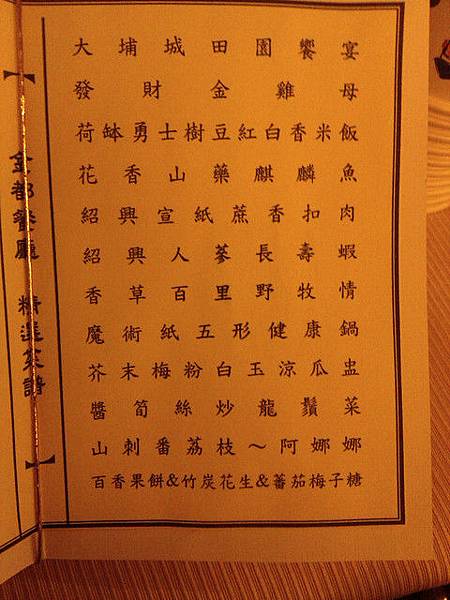 大埔城田園饗宴
發財金雞母
荷缽勇士樹豆紅白香米飯
花香山藥麒麟魚
紹興宣紙蔗香扣肉
紹興人蔘長壽蝦
香草百里野牧情
魔術紙五形健康鍋
芥末梅粉白玉涼瓜盅
醬筍絲炒龍鬚菜
山刺番荔枝～阿娜娜
百香果餅&竹炭花生&蕃茄梅子糖
金都餐廳 精選菜譜